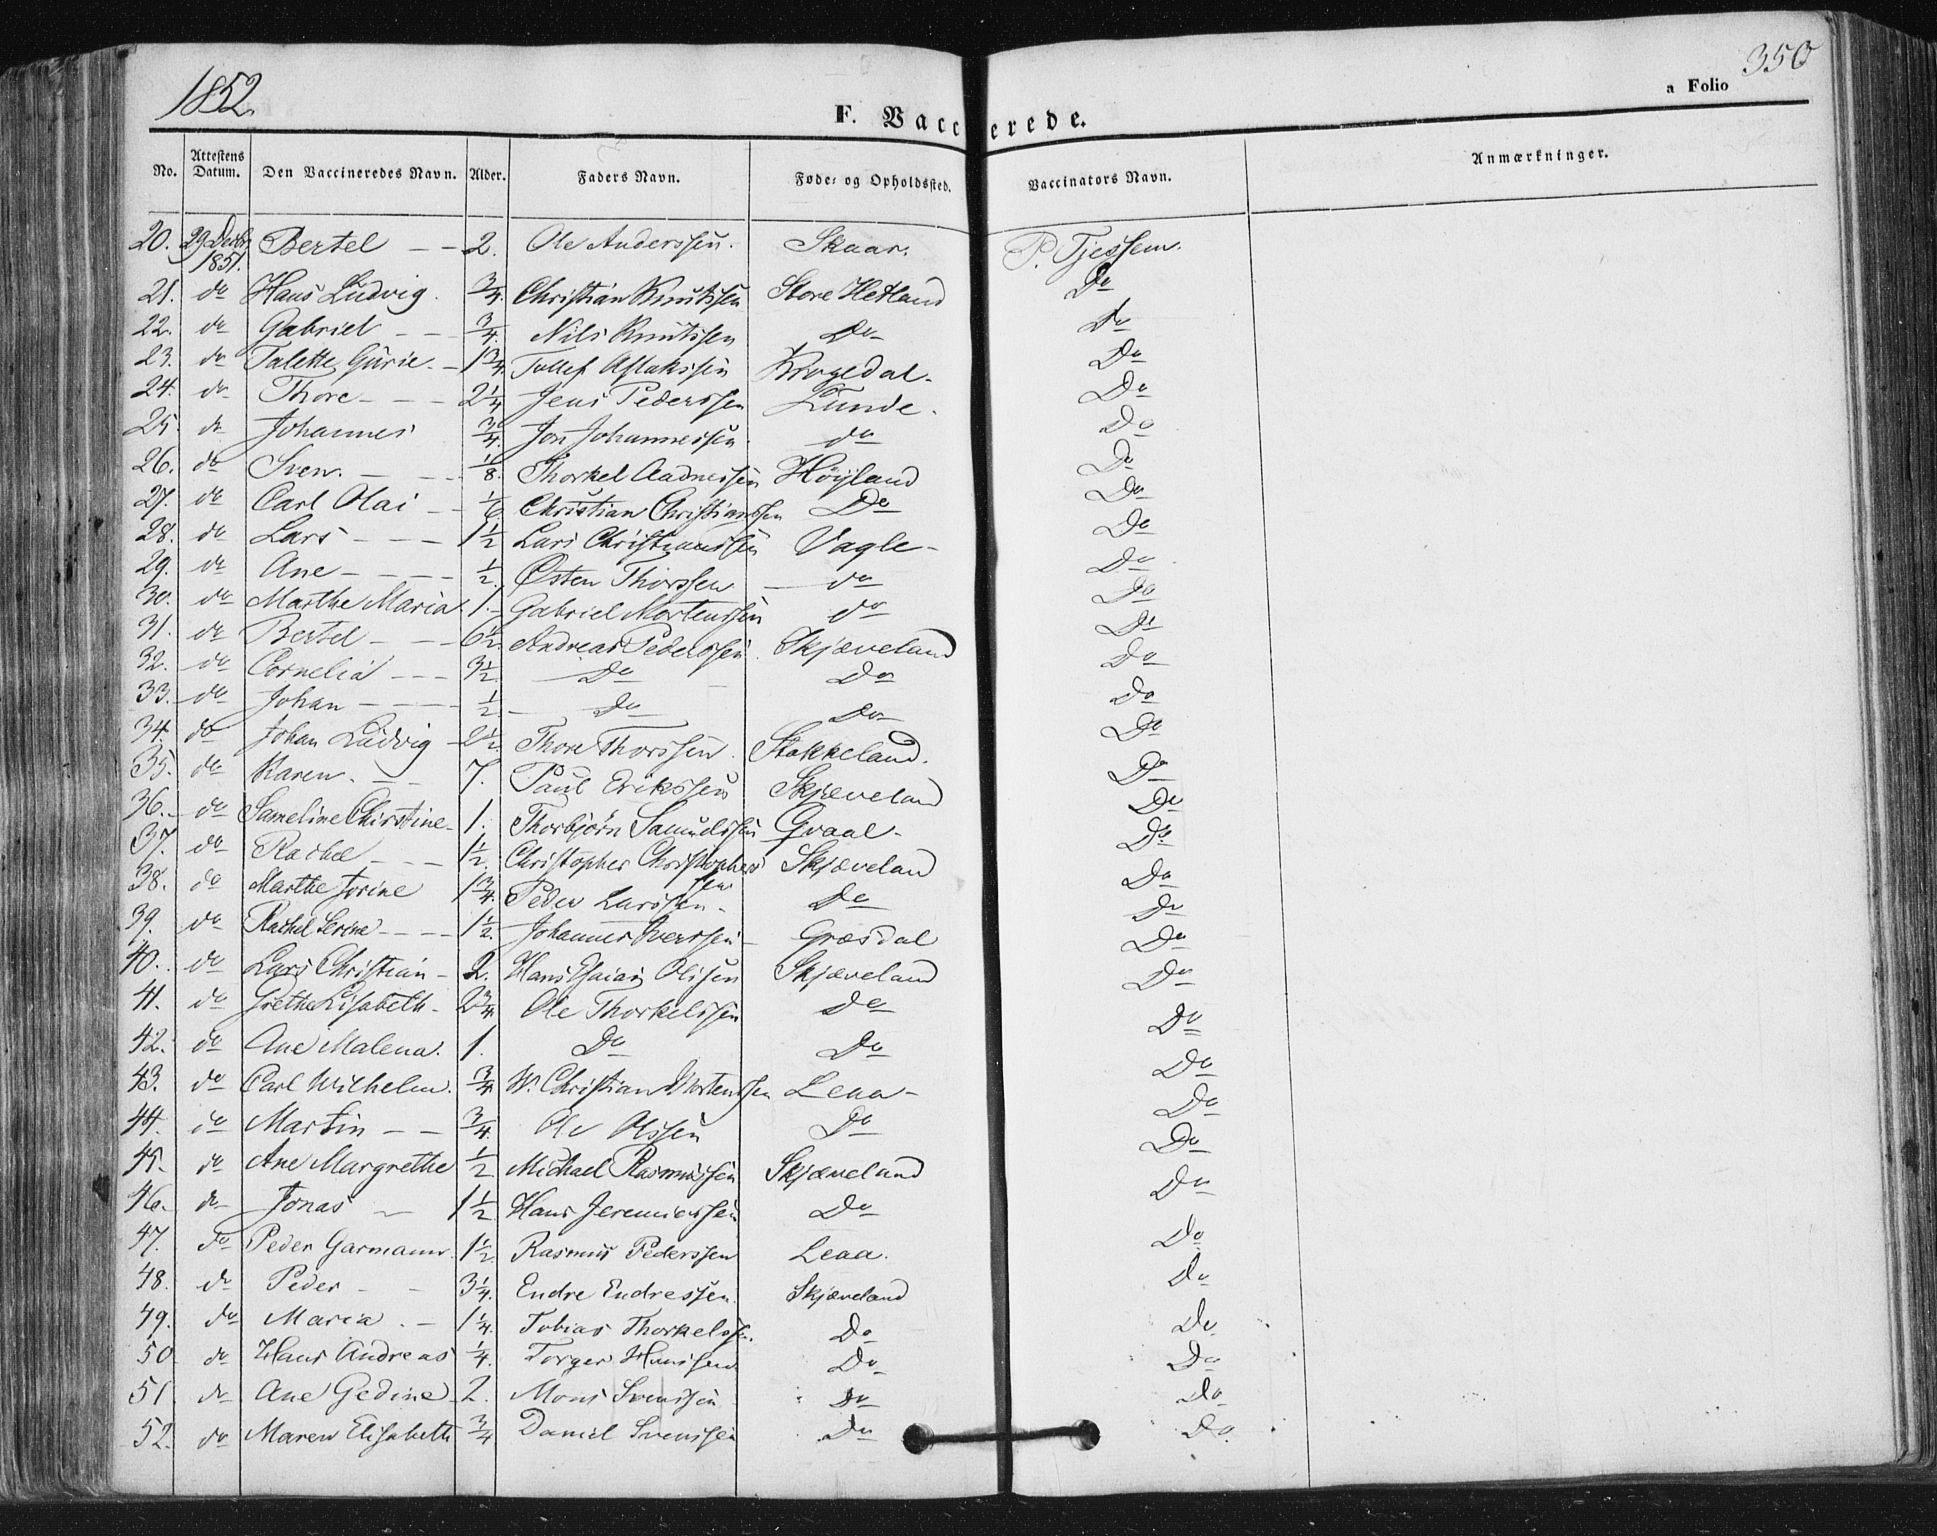 1852.
350
a Folio
F. Vaccinerede.
No. Attestens Datum. Den Vaccineredes Navn. Alder. Faders Navn. Føde- og Opholdssted. Vaccinators Navn. Anmærkninger.
20. 29 Decbr 1851. Bertel 2. Ole Anderssen. Skaar. P. Tjessem.
21. do Hans Ludvig. 3/4. Christian Knutssen Store Hetland Do
22. do Gabriel 3/4. Nils Knutssen Do Do
23. do Talette Gurie 1 3/4. Tollef Aslakssen Krogedal Do
24. do Thore 2 1/4 Jens Pederssen Lunde. Do
25. do Johannes 3/4. Jon Johannessen do Do
26. do Sven. 1/8. Thorkel Aadnessen Höyland Do
27. do Carl Olai 1/6 Christian Christianssen Do Do
28. do Lars 1 1/2 Lars Christianssen Vagle Do
29. do Ane 1/2. Østen Thorssen do Do
30. do Marthe Maria 1. Gabriel Mortenssen do Do
31. do Bertel 6 1/2. Andreas Pederssen Skjæveland Do
32. do Cornelia 3 1/2. Do Do Do
33. do Johan 1/2. Do Do Do
34. do Johan Ludvig 2 1/2. Thore Thorssen. Stokkeland. Do
35. do Karen. 7. Paul Erikssen Skjæveland Do
36. do Sameline Christine 1. Thorbjørn Samuelssen Qvaal Do
37. do Rachel 1 1/2. Christopher Christopherssen Skjæveland Do
38. do Marthe Jorine 1 3/4. Peder Larssen Do Do
39. do Rachel Serine 1 1/2. Johannes Iverssen Græsdal Do
40. do Lars Christian 2. Hans Esaias Olssen Skjæveland Do
41. do Grethe Lisabeth 2 3/4. Ole Thorkelssen do Do
42. do Ane Malena. 1. Do Do Do
43. do Carl Wilhelm. 3/4. W. Christian Mortenssen Leaa Do
44. do Martin 3/4. Ole Olssen Do Do
45. do Ane Margrethe 1/2 Michael Rasmussen Skjæveland Do
46. do Jonas 1 1/2. Hans Jeremiassen Do Do
47. do Peder Garmann. 1 1/2. Rasmus Pederssen Leaa. Do
48. do Peder 3 1/4. Endre Endressen. Skjæveland Do
49. do Maria. 1 1/4. Tobias Thorkelssen. Do Do
50. do Hans Andreas 1/4. Torger Hanssen Do Do
51. do Ane Gedine 2. Mons Svenssen do Do
52. do Maren Elisabeth 3/4 Daniel Svenssen Do Do.